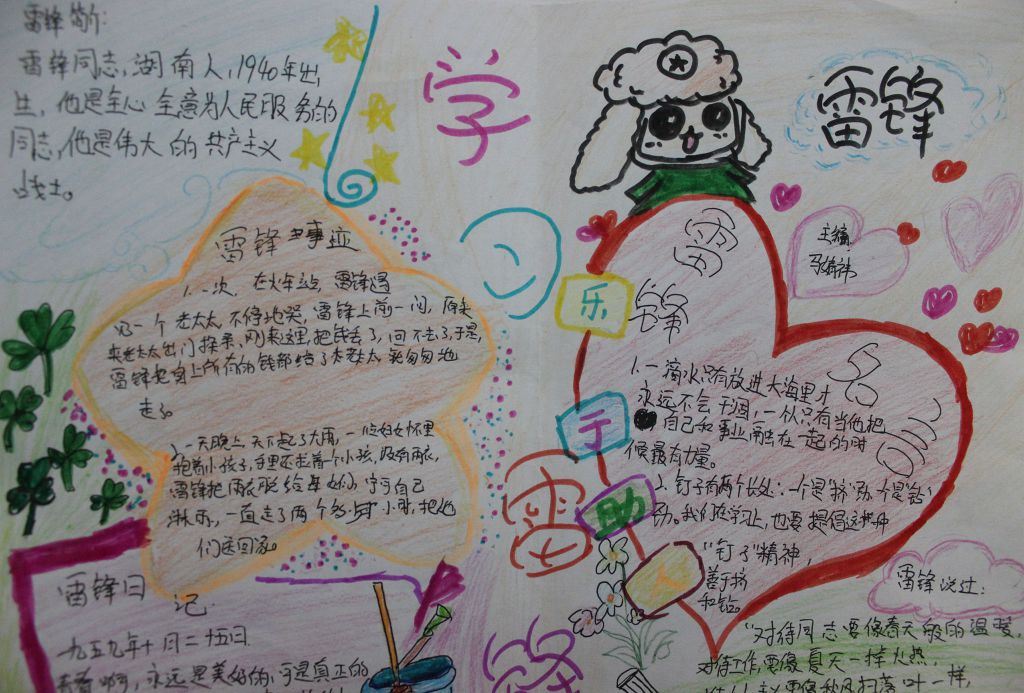 雷锋简介:
雷锋同志,湖南人,1940年出
生,他是全心全意为人民服务的
同志,他是伟大的共产主义
战士。
学
习
雷
锋
雷锋
雷锋事迹
1.一次,在火车站,雷锋遇
一个老太太不停地哭,雷锋上前一问,原来
老太太出门探亲,刚来这里,把钱丢了,回不去了,于是,
雷锋把身上所有的钱都给了老太太 匆匆地
走了。
2.一天晚上,天下起了大雨,一位妇女怀里
抱着小孩子,手里还拉着个小孩,没有雨衣,
雷锋把雨衣脱给 宁可自己
淋雨,一直走了两个多小时,把他
们送回家。
雷锋日
记
一九五九年十月二十五日
青春啊,永远是美好的,可是真正的
乐
于
助
人
雷
锋
名
言
1.一滴水只有放进大海里才
永远不会干涸,一个人只有当他把
自己和事业融在一起的时
候最有力量。
2.钉子有两个长处:一个是"挤"劲,一个是"钻"
劲。我们在学习上,也要提倡这种
"钉子"精神,
善于挤
和钻。
雷锋说过:
"对待同志要像春天般的温暖,
对待工作,要像夏天一样火热,
要像秋风扫落叶一样,